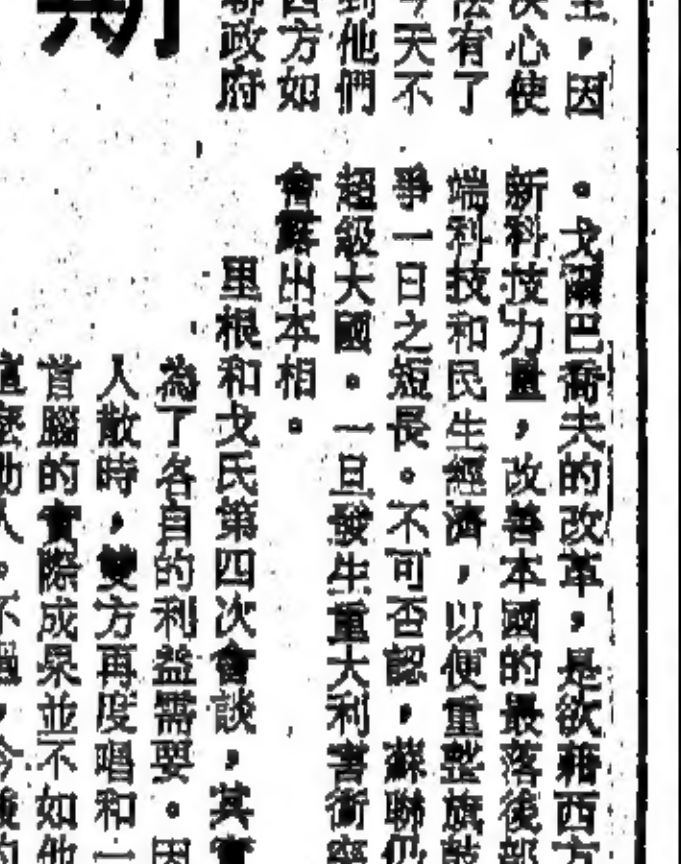 期
主，因
決心使
法有了
今天不
到他們
西方如
聯政府
。戈爾巴喬夫的改革，是欲藉西方
新科技力量，改善本國的最落後部
端科技和民生經濟，以便重整旗鼓
爭一日之短長。不可否認，蘇聯仍
超級大國。一旦發生重大利害衝突
會露出本相。
里根和戈氏第四次會談，其實
為了各自的利益需要。因
人散時，雙方再度唱和一
首腦的實際成果並不如他
這麼動人。不過，今後的